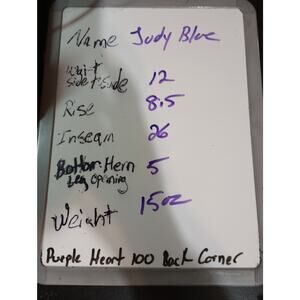 Name Judy Blue
Waist
side to side 12
Rise 8.5
Inseam 26
Bottom Hem 5
Leg Opening
Weight 15oz
Purple Heart 100 Back Corner